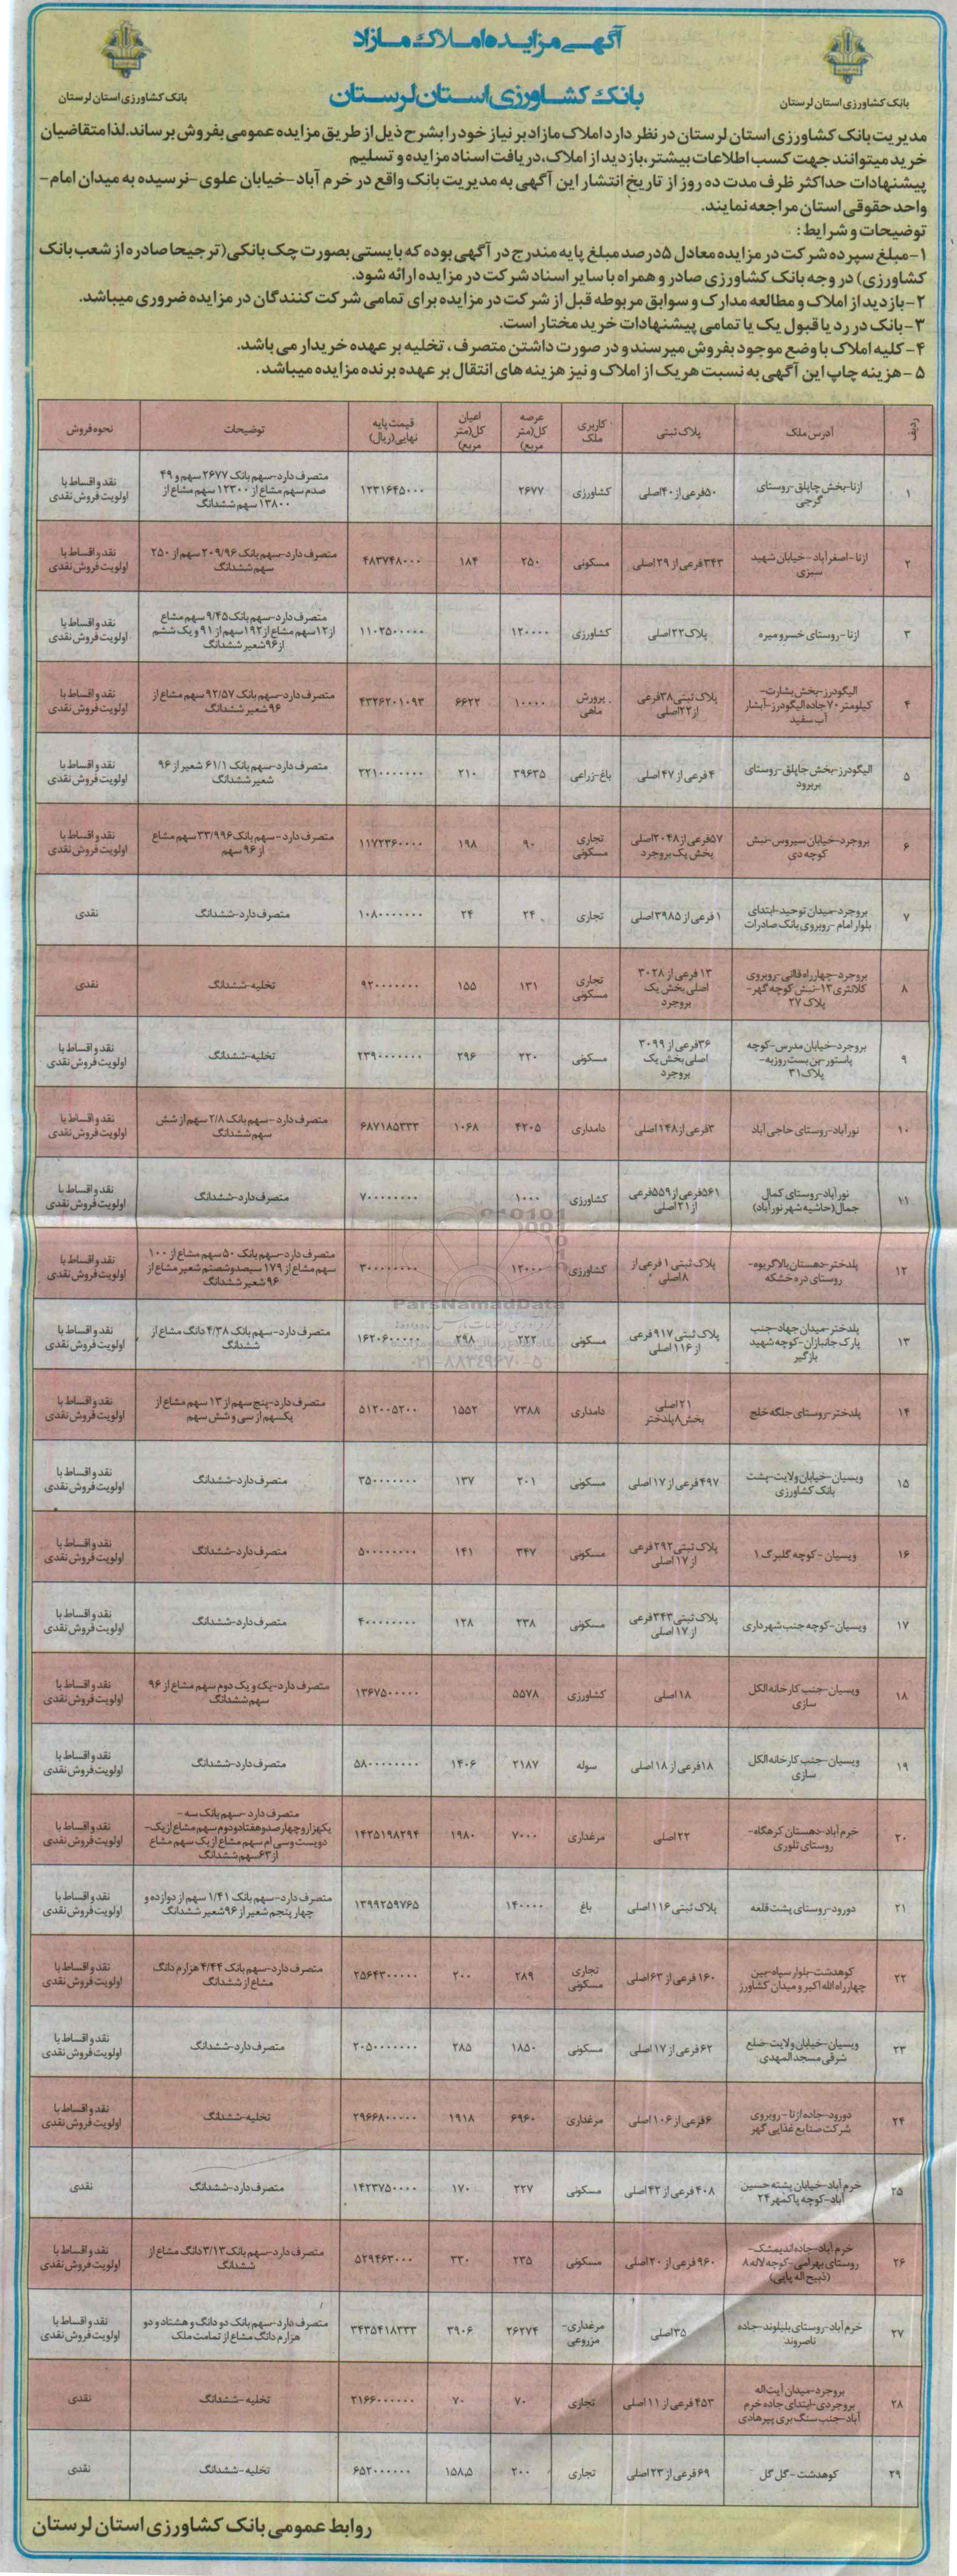 آگهی مزایده املاک مازاد
بانک کشاورزی استان لرستان
بانک کشاورزی استان لرستان
بانک کشاورزی استان لرستان
مدیریت بانک کشاورزی استان لرستان در نظر دارد املاک مازاد بر نیاز خود را بشرح ذیل از طریق مزایده عمومی بفروش برساند. لذا متقاضیان
خرید میتوانند جهت کسب اطلاعات بیشتر، بازدید از املاک، دریافت اسناد مزایده و تسلیم
پیشنهادات حداکثر ظرف مدت ده روز از تاریخ انتشار این آگهی به مدیریت بانک واقع در خرم آباد-خیابان علوی-نرسیده به میدان امام-
واحد حقوقی استان مراجعه نمایند.
توضیحات و شرایط:
۱-مبلغ سپرده شرکت در مزایده معادل ۵درصد مبلغ پایه مندرج در آگهی بوده که بایستی بصورت چک بانکی(ترجیحا صادره از شعب بانک
کشاورزی) در وجه بانک کشاورزی صادر و همراه با سایر اسناد شرکت در مزایده ارائه شود.
۲-بازدید از املاک و مطالعه مدارک و سوابق مربوطه قبل از شرکت در مزایده برای تمامی شرکت کنندگان در مزایده ضروری میباشد.
۳-بانک در رد یا قبول یک یا تمامی پیشنهادات خرید مختار است.
۴-کلیه املاک با وضع موجود بفروش میرسند و در صورت داشتن متصرف، تخلیه بر عهده خریدار می باشد.
۵-هزینه چاپ این آگهی به نسبت هریک از املاک و نیز هزینه های انتقال بر عهده برنده مزایده میباشد.
ردیف آدرس ملک پلاک ثبتی کاربری ملک عرصه کل(متر مربع) اعیان کل(متر مربع) قیمت پایه نهایی(ریال) توضیحات نحوه فروش
۱ ازنا-بخش چاپلق-روستای گرجی ۵۰فرعی از ۴۰اصلی کشاورزی ۲۶۷۷ ۱۲۳۱۶۴۵۰۰۰ متصرف دارد-سهم بانک ۲۶۷۷ سهم و ۴۹ صدم سهم مشاع از ۱۲۳۰۰ سهم مشاع از ۱۳۸۰۰ سهم ششدانگ نقد و اقساط با اولویت فروش نقدی
۲ ازنا-اصغرآباد-خیابان شهید سبزی ۳۴۳فرعی از ۲۹اصلی مسکونی ۲۵۰ ۱۸۴ ۴۸۳۷۴۸۰۰۰ متصرف دارد-سهم بانک ۲۰۹/۹۶ سهم از ۲۵۰ سهم ششدانگ نقد و اقساط با اولویت فروش نقدی
۳ ازنا-روستای خسرو میره پلاک۲۲اصلی کشاورزی ۱۲۰۰۰۰ ۱۱۰۲۵۰۰۰۰۰ متصرف دارد-سهم بانک۹/۴۵ سهم مشاع از۱۲سهم مشاع از۱۹۲سهم از ۹۱ و یک ششم از ۹۶شعیر ششدانگ نقد و اقساط با اولویت فروش نقدی
۴ الیگودرز-بخش بشارت-کیلومتر ۷۰جاده الیگودرز-آبشار آب سفید پلاک ثبتی۳۸فرعی از۲۲اصلی پرورش ماهی ۱۰۰۰۰ ۶۶۲۲ ۴۳۲۶۲۰۱۰۹۳ متصرف دارد-سهم بانک ۹۲/۵۷ سهم مشاع از ۹۶شعیر ششدانگ نقد و اقساط با اولویت فروش نقدی
۵ الیگودرز-بخش جاپلق-روستای بربرود ۴فرعی از ۴۷اصلی باغ-زراعی ۳۹۶۳۵ ۲۱۰ ۲۲۱۰۰۰۰۰۰۰ متصرف دارد-سهم بانک ۶۱/۱ شعیر از ۹۶ شعیر ششدانگ نقد و اقساط با اولویت فروش نقدی
۶ بروجرد-خیابان سیروس-نبش کوچه دی ۵۷فرعی از ۲۰۴۸اصلی بخش یک بروجرد تجاری مسکونی ۹۰ ۱۹۸ ۱۱۷۲۳۶۰۰۰۰ متصرف دارد-سهم بانک۳۳/۹۹۶سهم مشاع از ۹۶ سهم نقد و اقساط با اولویت فروش نقدی
۷ بروجرد-میدان توحید-ابتدای بلوار امام-روبروی بانک صادرات ۱فرعی از ۳۹۸۵اصلی تجاری ۲۴ ۲۴ ۱۰۸۰۰۰۰۰۰۰ متصرف دارد-ششدانگ نقدی
۸ بروجرد-چهارراه قاآنی-روبروی کلانتری۱۲-نبش کوچه گهر-پلاک ۲۷ ۱۳ فرعی از ۳۰۲۸ اصلی بخش یک بروجرد تجاری مسکونی ۱۳۱ ۱۵۵ ۹۲۰۰۰۰۰۰۰ تخلیه-ششدانگ نقدی
۹ بروجرد-خیابان مدرس-کوچه پاستور-بن بست روزبه-پلاک۳۱ ۳۶فرعی از ۳۰۹۹ اصلی بخش یک بروجرد مسکونی ۲۲۰ ۲۹۶ ۲۳۹۰۰۰۰۰۰۰ تخلیه-ششدانگ نقد و اقساط با اولویت فروش نقدی
۱۰ نورآباد-روستای حاجی آباد ۳فرعی از۱۴۸اصلی دامداری ۴۲۰۵ ۱۰۶۸ ۶۸۷۱۸۵۳۳۳ متصرف دارد-سهم بانک ۲/۸ سهم از شش سهم ششدانگ نقد و اقساط با اولویت فروش نقدی
۱۱ نورآباد-روستای کمال جمال(حاشیه شهر نورآباد) ۵۶۱فرعی از ۵۵۹فرعی از۲۱اصلی کشاورزی ۱۰۰۰ ۷۰۰۰۰۰۰۰۰ متصرف دارد-ششدانگ نقد و اقساط با اولویت فروش نقدی
۱۲ پلدختر-دهستان بالاگریوه-روستای دره خشکه پلاک ثبتی ۱ فرعی از ۸اصلی کشاورزی ۱۲۰۰۰ ۳۰۰۰۰۰۰۰۰ متصرف دارد-سهم بانک ۵۰سهم مشاع از ۱۰۰ سهم مشاع از ۱۷۹ سیصدوشصتم شعیر مشاع از ۹۶شعیر ششدانگ نقد و اقساط با اولویت فروش نقدی
۱۳ پلدختر-میدان جهاد-جنب پارک جانبازان-کوچه شهید بازگیر پلاک ثبتی ۹۱۷فرعی از ۱۱۶اصلی مسکونی ۲۲۲ ۲۹۸ ۱۶۲۰۶۰۰۰۰۰ متصرف دارد-سهم بانک ۴/۳۸ دانگ مشاع از ششدانگ نقد و اقساط با اولویت فروش نقدی
۱۴ پلدختر-روستای جلگه خلج ۲۱اصلی بخش۸پلدختر دامداری ۷۳۸۸ ۱۵۵۲ ۵۱۲۰۰۵۲۰۰ متصرف دارد-پنج سهم از ۱۳ سهم مشاع از یکسهم از سی و شش سهم نقد و اقساط با اولویت فروش نقدی
۱۵ ویسیان-خیابان ولایت-پشت بانک کشاورزی ۴۹۷فرعی از ۱۷اصلی مسکونی ۲۰۱ ۱۳۷ ۳۵۰۰۰۰۰۰۰ متصرف دارد-ششدانگ نقد و اقساط با اولویت فروش نقدی
۱۶ ویسیان-کوچه گلبرگ۱ پلاک ثبتی۲۹۲فرعی از ۱۷اصلی مسکونی ۳۴۷ ۱۴۱ ۵۰۰۰۰۰۰۰۰ متصرف دارد-ششدانگ نقد و اقساط با اولویت فروش نقدی
۱۷ ویسیان-کوچه جنب شهرداری پلاک ثبتی۳۴۳فرعی از ۱۷اصلی مسکونی ۲۳۸ ۱۲۸ ۴۰۰۰۰۰۰۰۰ متصرف دارد-ششدانگ نقد و اقساط با اولویت فروش نقدی
۱۸ ویسیان-جنب کارخانه الکل سازی ۱۸اصلی کشاورزی ۵۵۷۸ ۱۳۶۷۵۰۰۰۰۰ متصرف دارد-یک و یک دوم سهم مشاع از ۹۶ سهم ششدانگ نقد و اقساط با اولویت فروش نقدی
۱۹ ویسیان-جنب کارخانه الکل سازی ۱۸فرعی از ۱۸اصلی سوله ۲۱۸۷ ۱۴۰۶ ۵۸۰۰۰۰۰۰۰۰ متصرف دارد-ششدانگ نقد و اقساط با اولویت فروش نقدی
۲۰ خرم آباد-دهستان کرهگاه-روستای تلوری ۲۲اصلی مرغداری ۷۰۰۰ ۱۹۸۰ ۱۴۲۵۱۹۸۲۹۴ متصرف دارد-سهم بانک سه-یکهزار و چهارصدوهفتادودوم سهم مشاع از یک-دویست و سی ام سهم مشاع از یک سهم مشاع از ۶۳سهم ششدانگ نقد و اقساط با اولویت فروش نقدی
۲۱ دورود-روستای پشت قلعه پلاک ثبتی ۱۱۶اصلی باغ ۱۴۰۰۰۰ ۱۳۹۹۲۵۹۷۶۵ متصرف دارد-سهم بانک ۱/۴۱ سهم از دوازده و چهار پنجم شعیر از ۹۶شعیر ششدانگ نقد و اقساط با اولویت فروش نقدی
۲۲ کوهدشت-بلوار سپاه-بین چهارراه الله اکبر و میدان کشاورز ۱۶۰فرعی از ۶۳اصلی تجاری مسکونی ۲۸۹ ۲۰۰ ۲۵۶۴۳۰۰۰۰۰ متصرف دارد-سهم بانک ۴/۴۴ هزارم دانگ مشاع از ششدانگ نقد و اقساط با اولویت فروش نقدی
۲۳ ویسیان-خیابان ولایت-ضلع شرقی مسجد المهدی ۶۲فرعی از ۱۷اصلی مسکونی ۱۸۵۰ ۲۸۵ ۲۰۵۰۰۰۰۰۰۰ متصرف دارد-ششدانگ نقد و اقساط با اولویت فروش نقدی
۲۴ دورود-جاده ازنا-روبروی شرکت صنایع غذایی گهر ۶فرعی از ۱۰۶اصلی مرغداری ۶۹۶۰ ۱۹۱۸ ۲۹۶۶۸۰۰۰۰۰ تخلیه-ششدانگ نقد و اقساط با اولویت فروش نقدی
۲۵ خرم آباد-خیابان پشته حسین آباد-کوچه پاکمهر۲۴ ۴۰۸فرعی از ۴۲اصلی مسکونی ۲۲۷ ۱۷۰ ۱۴۲۳۷۵۰۰۰۰ متصرف دارد-ششدانگ نقدی
۲۶ خرم آباد-جاده اندیمشک-روستای بهرامی-کوچه لاله۸ (ذبیح اله پاپی) ۹۶۰فرعی از ۲۰اصلی مسکونی ۲۳۵ ۳۳۰ ۵۲۹۴۶۳۰۰۰ متصرف دارد-سهم بانک۳/۱۳دانگ مشاع از ششدانگ نقد و اقساط با اولویت فروش نقدی
۲۷ خرم آباد-روستای بلیلوند-جاده ناصروند ۳۵اصلی مرغداری-مزروعی ۲۶۲۷۴ ۳۹۰۶ ۳۴۳۵۴۱۸۳۳۳ متصرف دارد-سهم بانک دو دانگ و هشتاد و دو هزارم دانگ مشاع از تمامت ملک نقد و اقساط با اولویت فروش نقدی
۲۸ بروجرد-میدان آیت اله بروجردی-ابتدای جاده خرم آباد-جنب سنگ بری پیرهادی ۴۵۳فرعی از ۱۱اصلی تجاری ۷۰ ۷۰ ۲۱۶۶۰۰۰۰۰۰ تخلیه-ششدانگ نقدی
۲۹ کوهدشت-گل گل ۶۹فرعی از ۲۳اصلی تجاری ۲۰۰ ۱۵۸,۵ ۶۵۲۰۰۰۰۰۰ تخلیه-ششدانگ نقدی
ParsNamadData
۰۲۱-۸۸۳۴۹۶۷۰-۵
روابط عمومی بانک کشاورزی استان لرستان